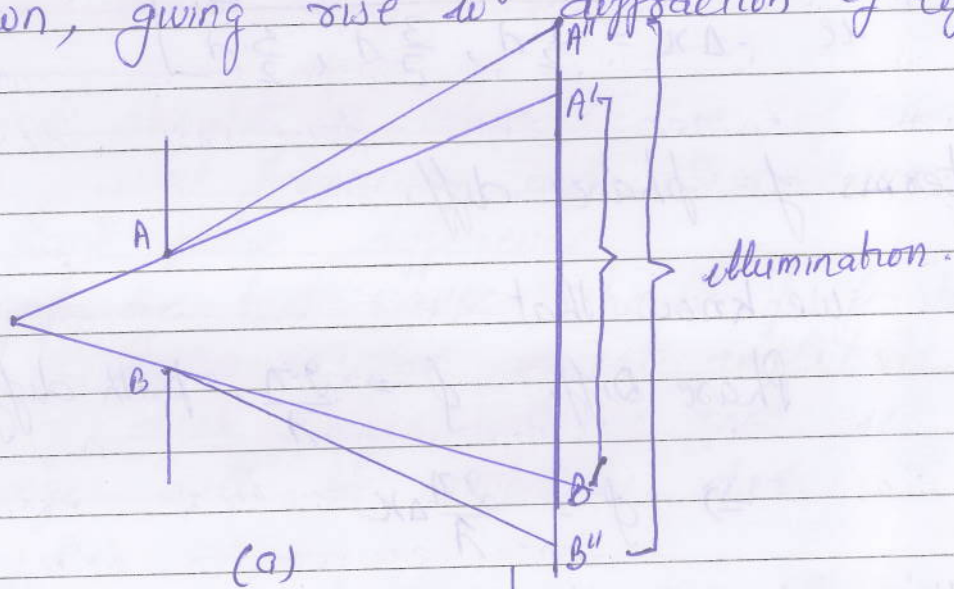 on, giving rise to diffraction of
A"
A'
A
illumination.
B
B'
B"
(a)